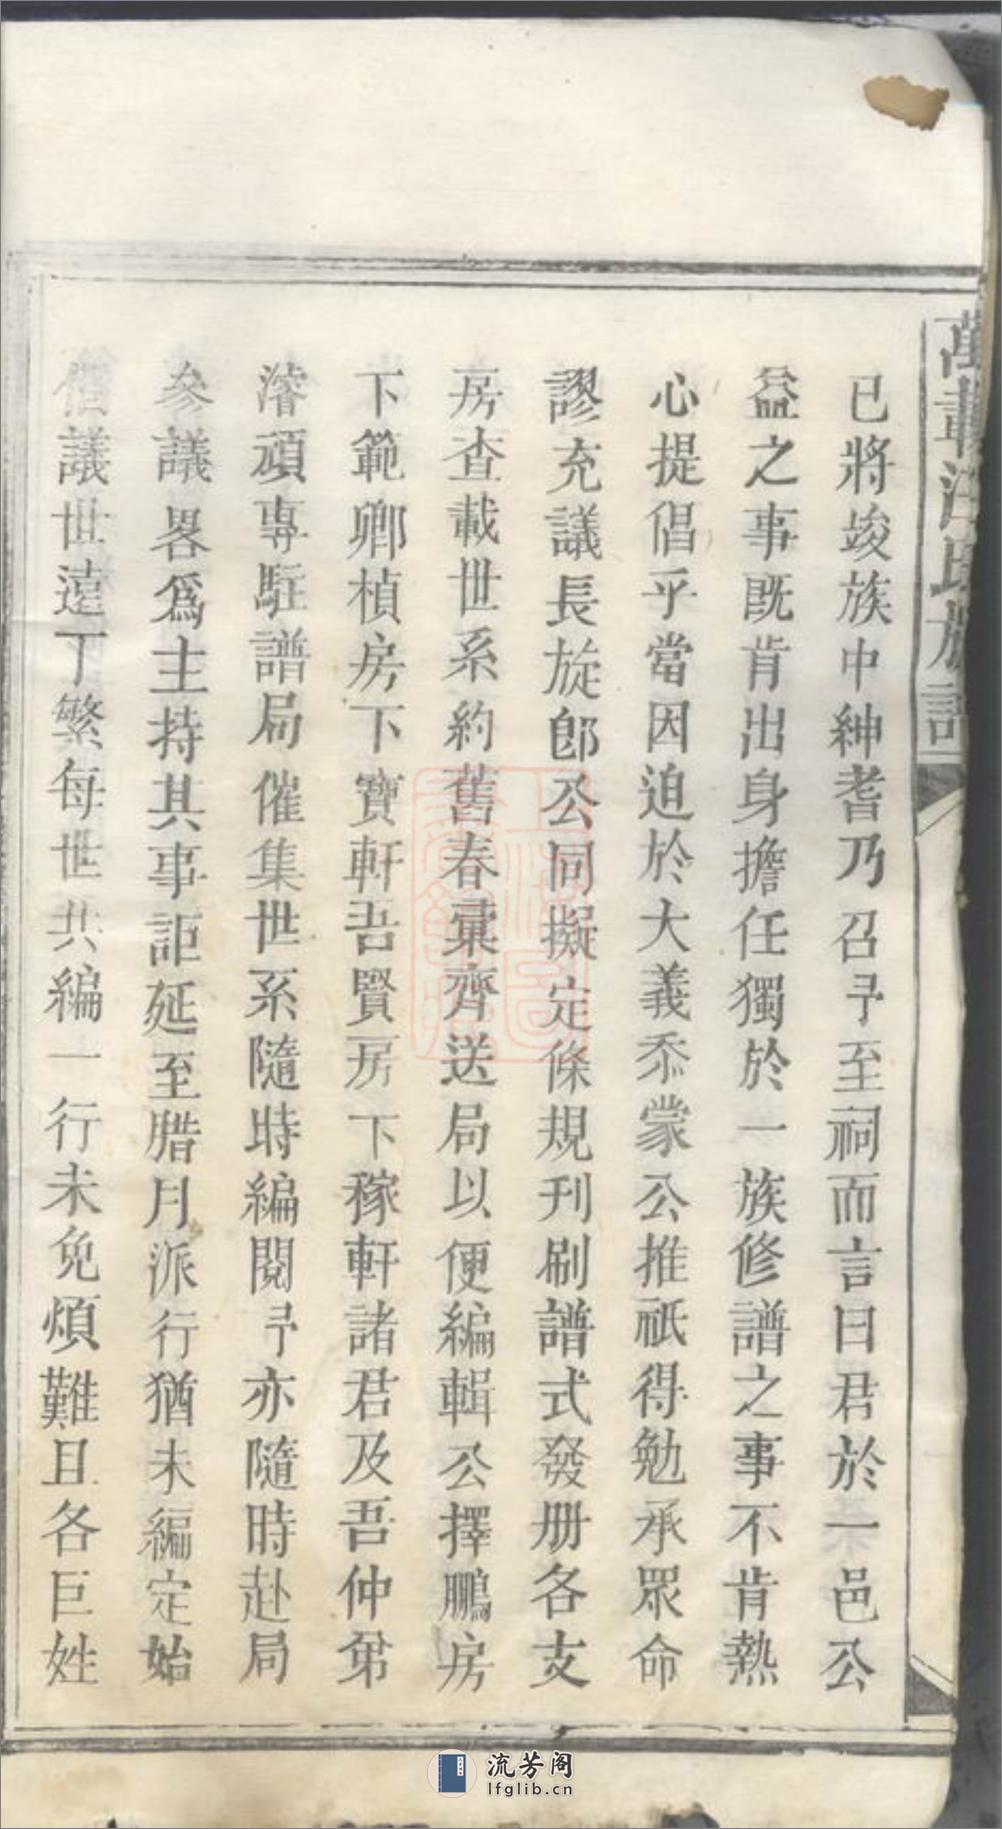 萬載汪氏族譜
已將竣族中紳耆乃召予至祠而言曰君於一邑公
益之事既肯出身擔任獨於一族修譜之事不肯熱
心提倡乎當因迫於大義忝蒙公推祇得勉承眾命
謬充議長旋卽公同擬定條規刊刷譜式發册各支
房查載世系約舊春彙齊送局以便編輯公擇鵬房
下範卿楨房下寶軒吾賢房下稼軒諸君及吾仲弟
濬頑專駐譜局催集世系隨時編閱予亦隨時赴局
參議畧為主持其事詎延至腊月派行猶未編定始
倡議世遠丁繁每世共編一行未免煩難且各巨姓
流芳阁
lfglib.cn